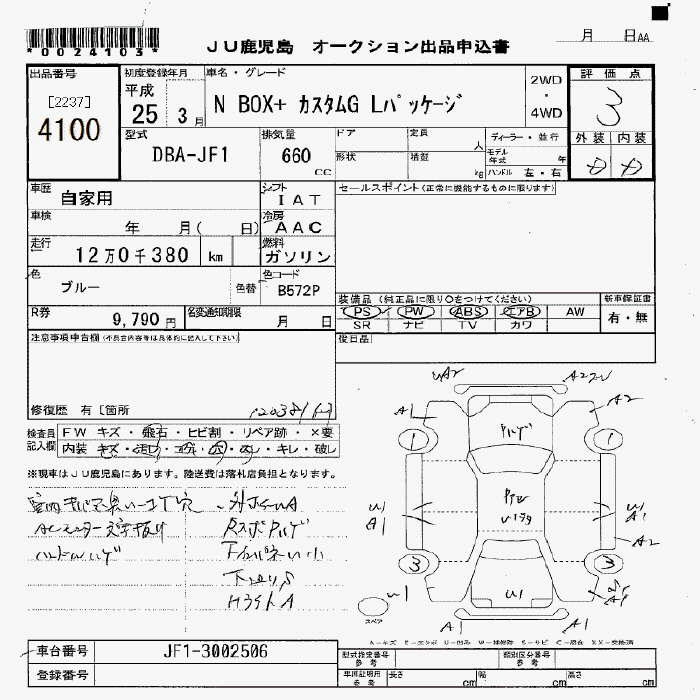 *0024103*
JU鹿児島 オークション出品申込書
月 日AA
出品番号
[2237]
4100
初度登録年月
平成
25 3月
車名・グレード
N BOX+ カスタムG Lパッケージ
2WD
・
4WD
評価点
3
外装 内装
型式
DBA-JF1
排気量
660
CC
ドア
定員
人
形状
積載
kg
ディーラー・並行
モデル年式 年
ハンドル 左・右
車歴
自家用
シフト
IAT
セールスポイント(正常に機能するものに限ります)
車検
年 月( 日)
冷房
AAC
走行
12万0千380 km
燃料
ガソリン
色
ブルー
色替
色コード
B572P
装備品(純正品に限り○をつけてください)
新車保証書
PS PW ABS エアB AW
SR ナビ TV カワ
有・無
R券
9,790円
名変通知期限
月 日
注意事項申告欄(不具合内容等は具体的に記入して下さい)
後日品
修復歴 有 [箇所
検査員記入欄
FW キズ・飛石・ヒビ割・リペア跡・×要
内装 キズ・汚れ・コゲ・穴・スレ・キレ・破レ
※現車はJU鹿児島にあります。陸送費は落札店負担となります。
ACモニター文字抜け
ハンドルハゲ
A2
A1
A2
1
1
U1
A1
U1
A1
A2
3
3
U1
U1
スペア
A1
A1
車台番号
JF1-3002506
登録番号
型式指定番号
参考
類別区分番号
参考
車両証明用
参考
長さ cm
幅 cm
高さ cm